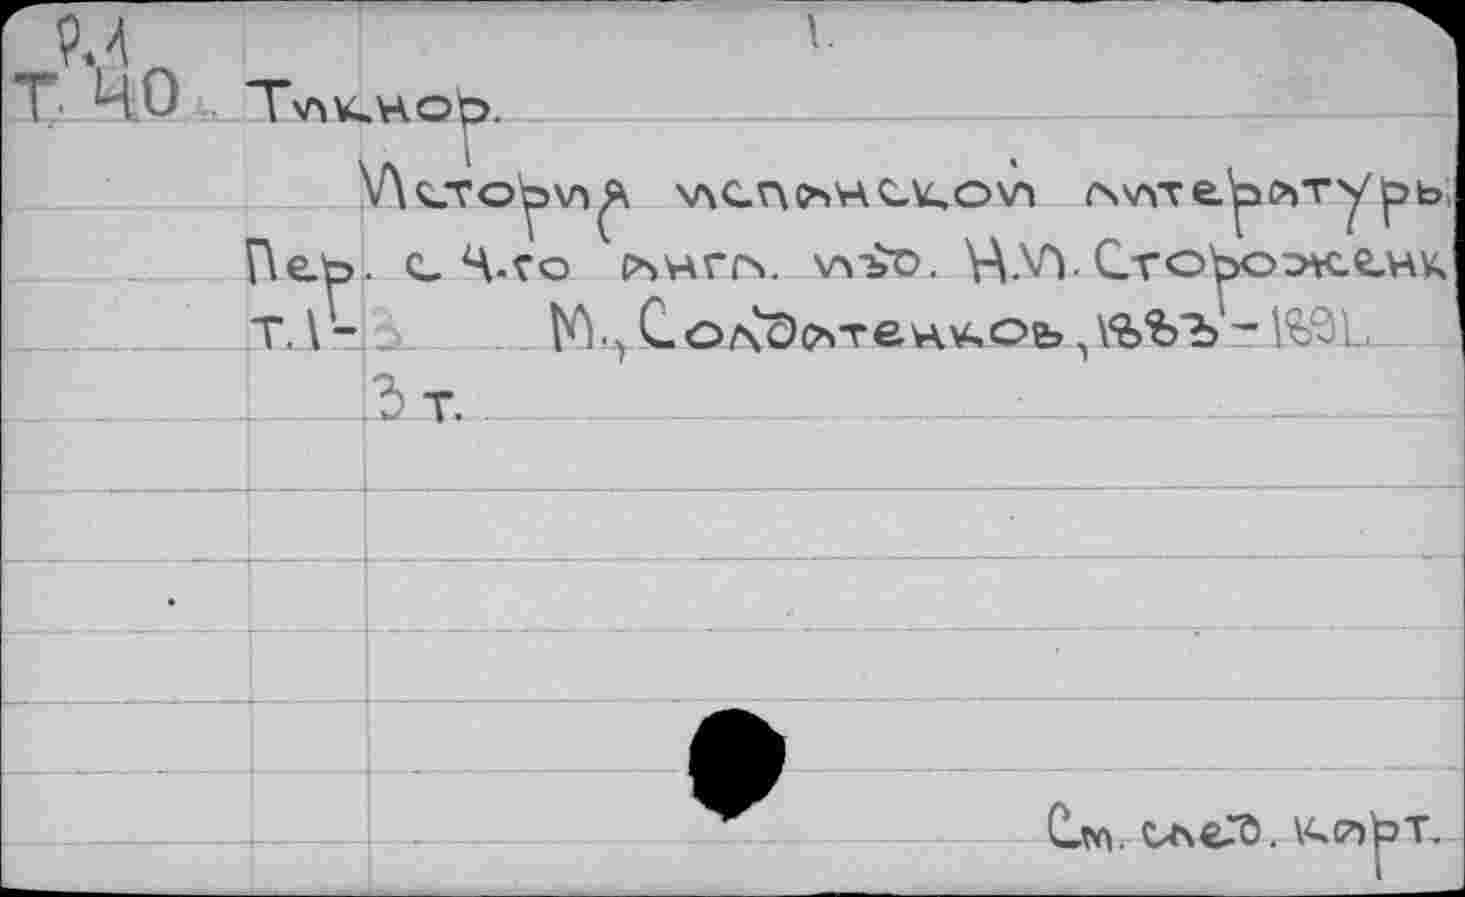 1.
Р.4
Т. 40 Тикнор.
История испанской литературы
Пер. с 4-го англ. изд. Н.И. Стороженк
Т. 1- М., Солдатенков, 1883-1891.
3 т.
См. след. карт.